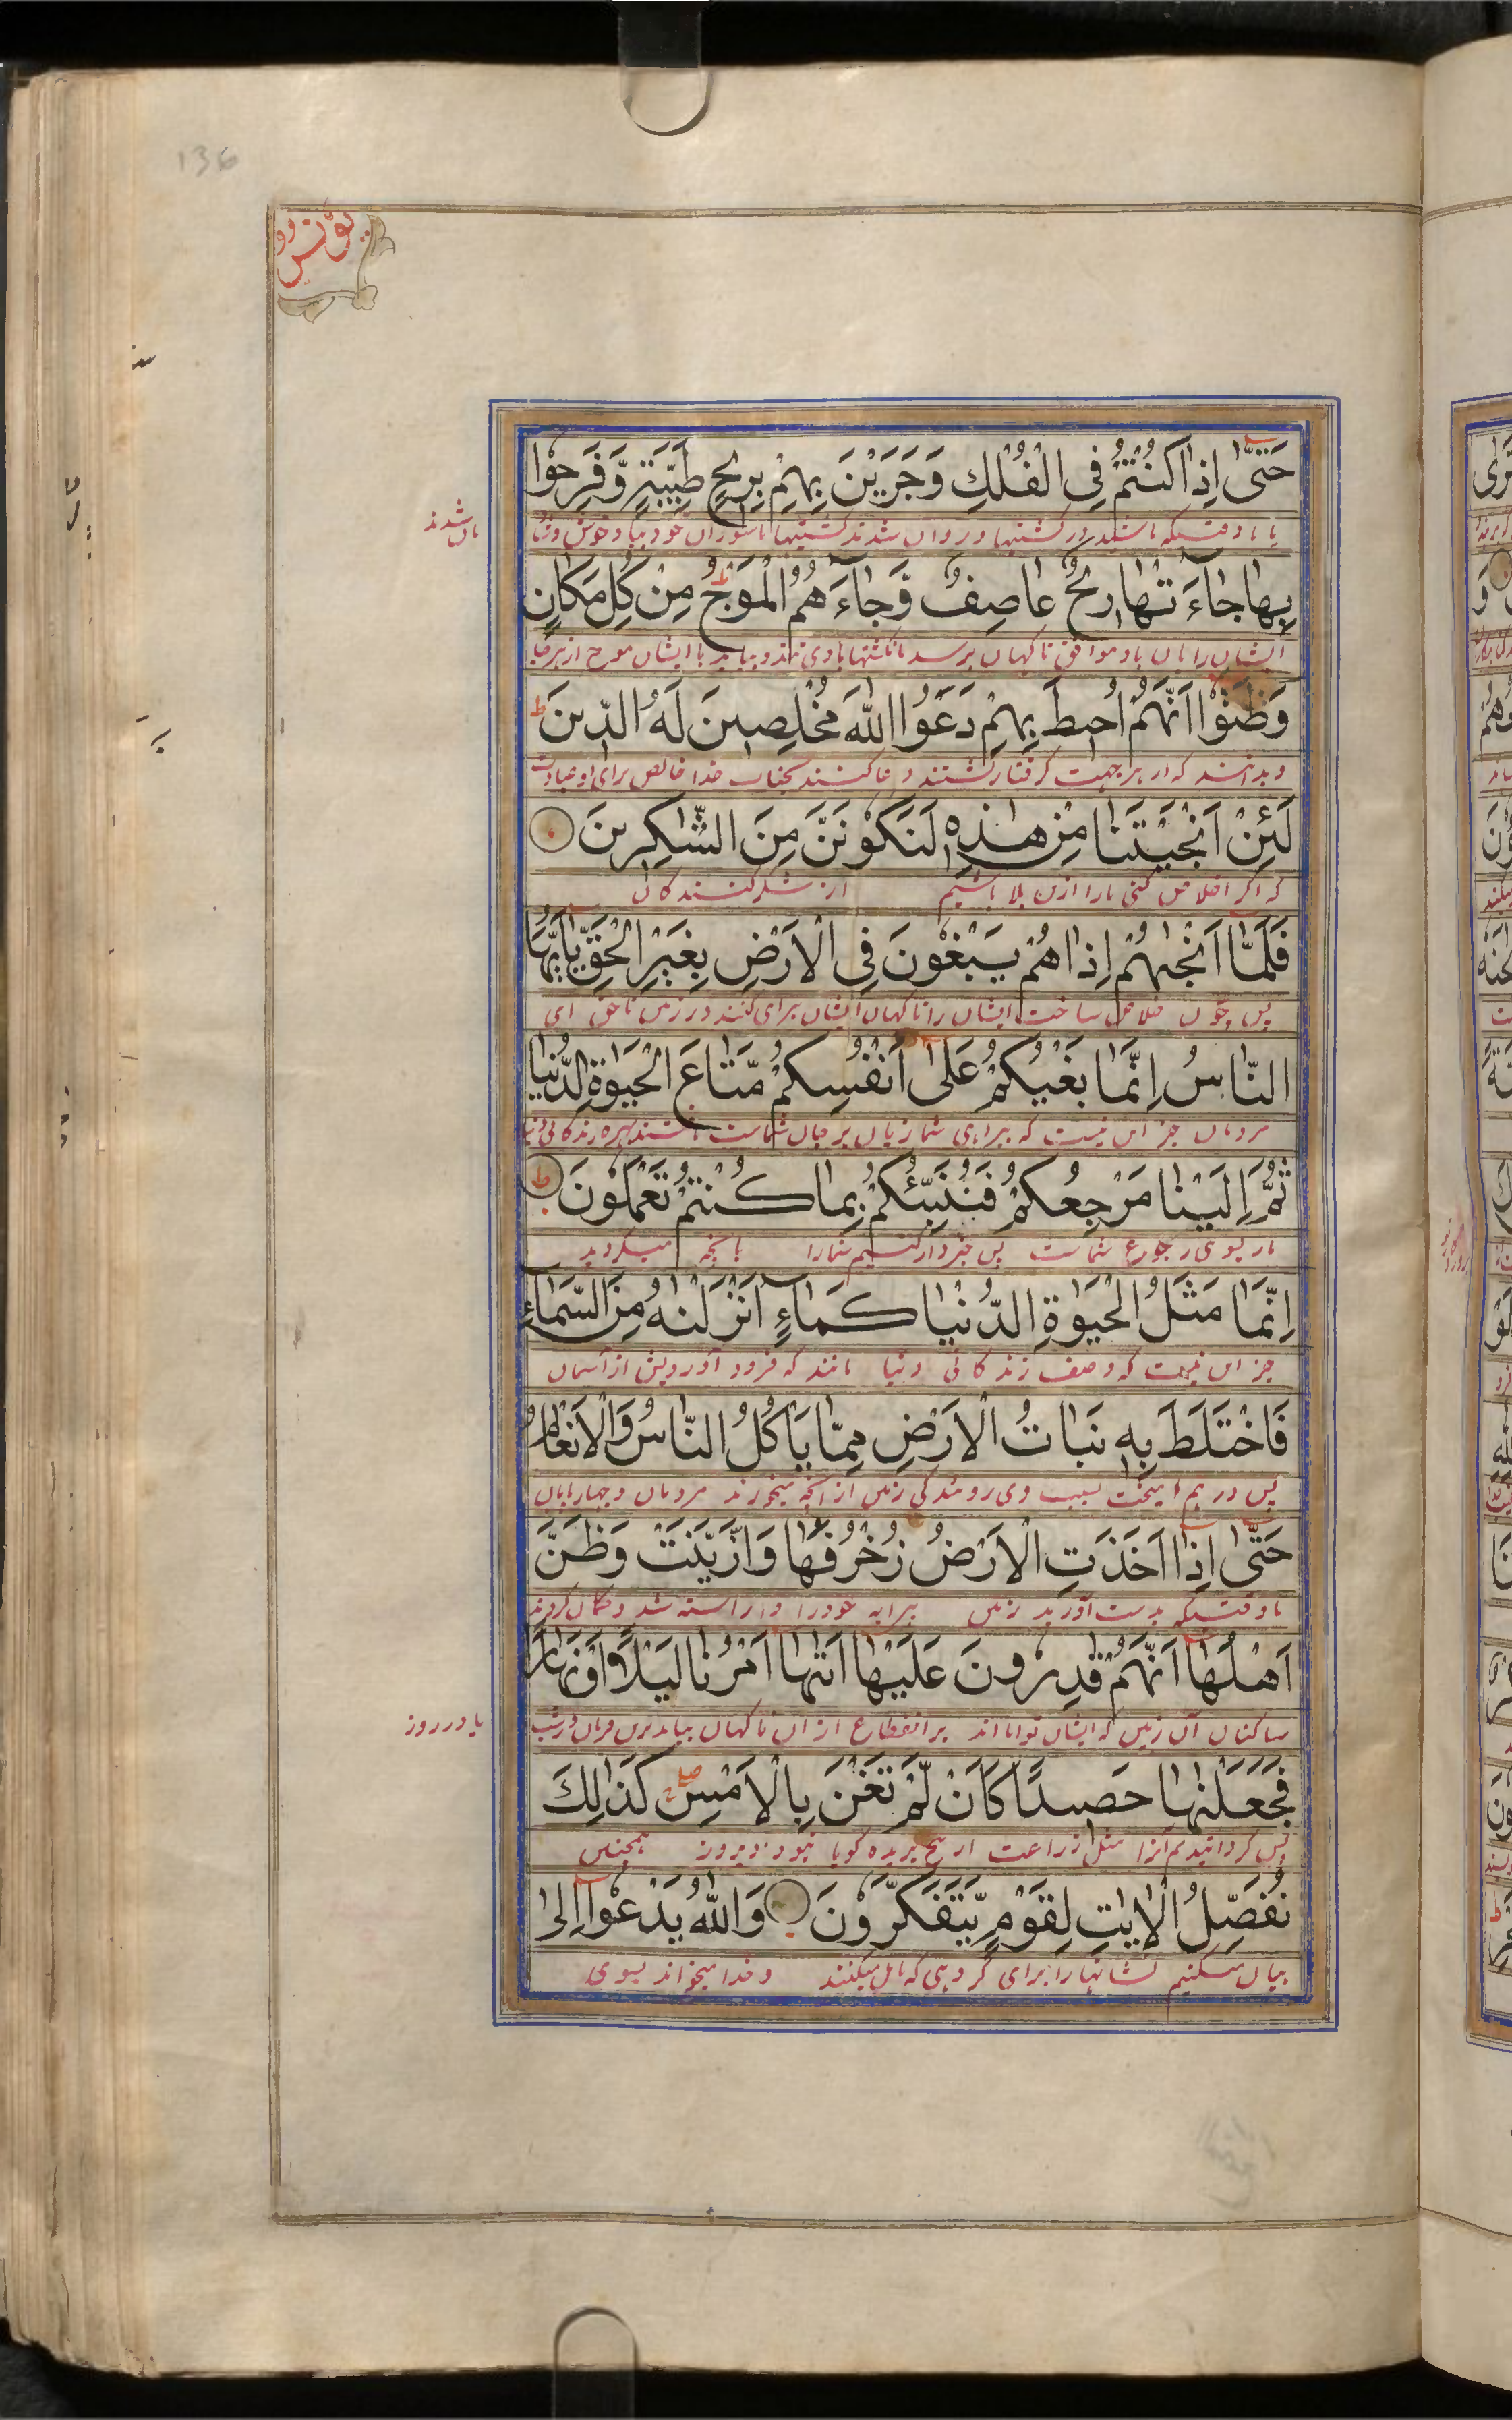 136
یونس
حَتّٰى اِذَا كُنْتُمْ فِى الْفُلْكِ وَجَرَيْنَ بِهِمْ بِرِيْحٍ طَيِّبَةٍ وَّفَرِحُوْا
بِهَا جَاءَتْهَا رِيْحٌ عَاصِفٌ وَّجَاءَهُمُ الْمَوْجُ مِنْ كُلِّ مَكَانٍ
ایشان را بآن باد موافق ناگهان برسد بآن کشتیها بادی تند و بیاید با ایشان موج از هر جا
وَظَنُّوْا اَنَّهُمْ اُحِيْطَ بِهِمْ دَعَوُا اللّٰهَ مُخْلِصِيْنَ لَهُ الدِّيْنَ ط
و بدانند که از هر جهت گرفتار گشتند دعا کنند بجناب خدا خالص برای او عبادت
لَئِنْ اَنْجَيْتَنَا مِنْ هٰذِهٖ لَنَكُوْنَنَّ مِنَ الشّٰكِرِيْنَ
که اگر اخلاص کنی ما را ازین بلا باشیم از شکر کنندگان
فَلَمَّا اَنْجٰىهُمْ اِذَا هُمْ يَبْغُوْنَ فِى الْاَرْضِ بِغَيْرِ الْحَقِّ يٰاَيُّهَا
پس چون خلاص ساخت ایشان را ناگهان ایشان بیراهی کنند در زمین ناحق ای
النَّاسُ اِنَّمَا بَغْيُكُمْ عَلٰى اَنْفُسِكُمْ مَّتَاعَ الْحَيٰوةِ الدُّنْيَا
مردمان جز این نیست که بیراهی شما زیان بر جان شماست باشند بهره زندگانی دنیا
ثُمَّ اِلَيْنَا مَرْجِعُكُمْ فَنُنَبِّئُكُمْ بِمَا كُنْتُمْ تَعْمَلُوْنَ ط
باز بسوی رجوع شماست پس خبردار کنیم شما را بآنچه میکردید
اِنَّمَا مَثَلُ الْحَيٰوةِ الدُّنْيَا كَمَاءٍ اَنْزَلْنٰهُ مِنَ السَّمَاءِ
جز این نیست که وصف زندگانی دنیا مانند که فرود آوردیمش از آسمان
فَاخْتَلَطَ بِهٖ نَبَاتُ الْاَرْضِ مِمَّا يَاْكُلُ النَّاسُ وَالْاَنْعَامُ
پس درهم آمیخت بسبب وی روئیدگی زمین از آنچه میخورند مردمان و چهارپایان
حَتّٰى اِذَا اَخَذَتِ الْاَرْضُ زُخْرُفَهَا وَازَّيَّنَتْ وَظَنَّ
تا وقتیکه بدست آورید زمین پیرایه خود را و آراسته شد و گمان کردند
اَهْلُهَا اَنَّهُمْ قٰدِرُوْنَ عَلَيْهَا اَتٰىهَا اَمْرُنَا لَيْلًا اَوْ نَهَارًا
ساکنان آن زمین که ایشان توانااند بر انقطاع از آن ناگهان بیامد برین فرمان در شب
یا در روز
فَجَعَلْنٰهَا حَصِيْدًا كَاَنْ لَّمْ تَغْنَ بِالْاَمْسِ كَذٰلِكَ
پس گردانیدیم آنرا مثل زراعت از بیخ بریده گویا نبود دیروز همچنین
نُفَصِّلُ الْاٰيٰتِ لِقَوْمٍ يَّتَفَكَّرُوْنَ وَاللّٰهُ يَدْعُوْا اِلٰى
بیان میکنیم نشانها را برای گروهی که تامل میکنند و خدا میخواند بسوی